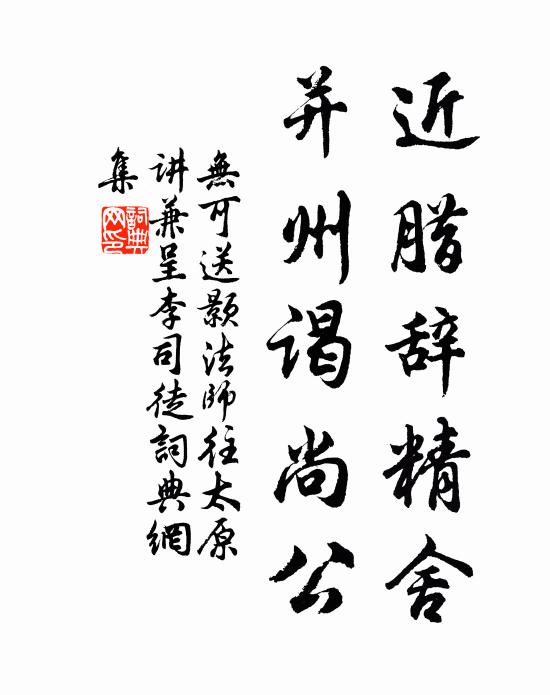 近腊辞精舍
并州谒尚公
無可送颢法師往太原
讲兼呈李司徒詞典網
集
詞典网印